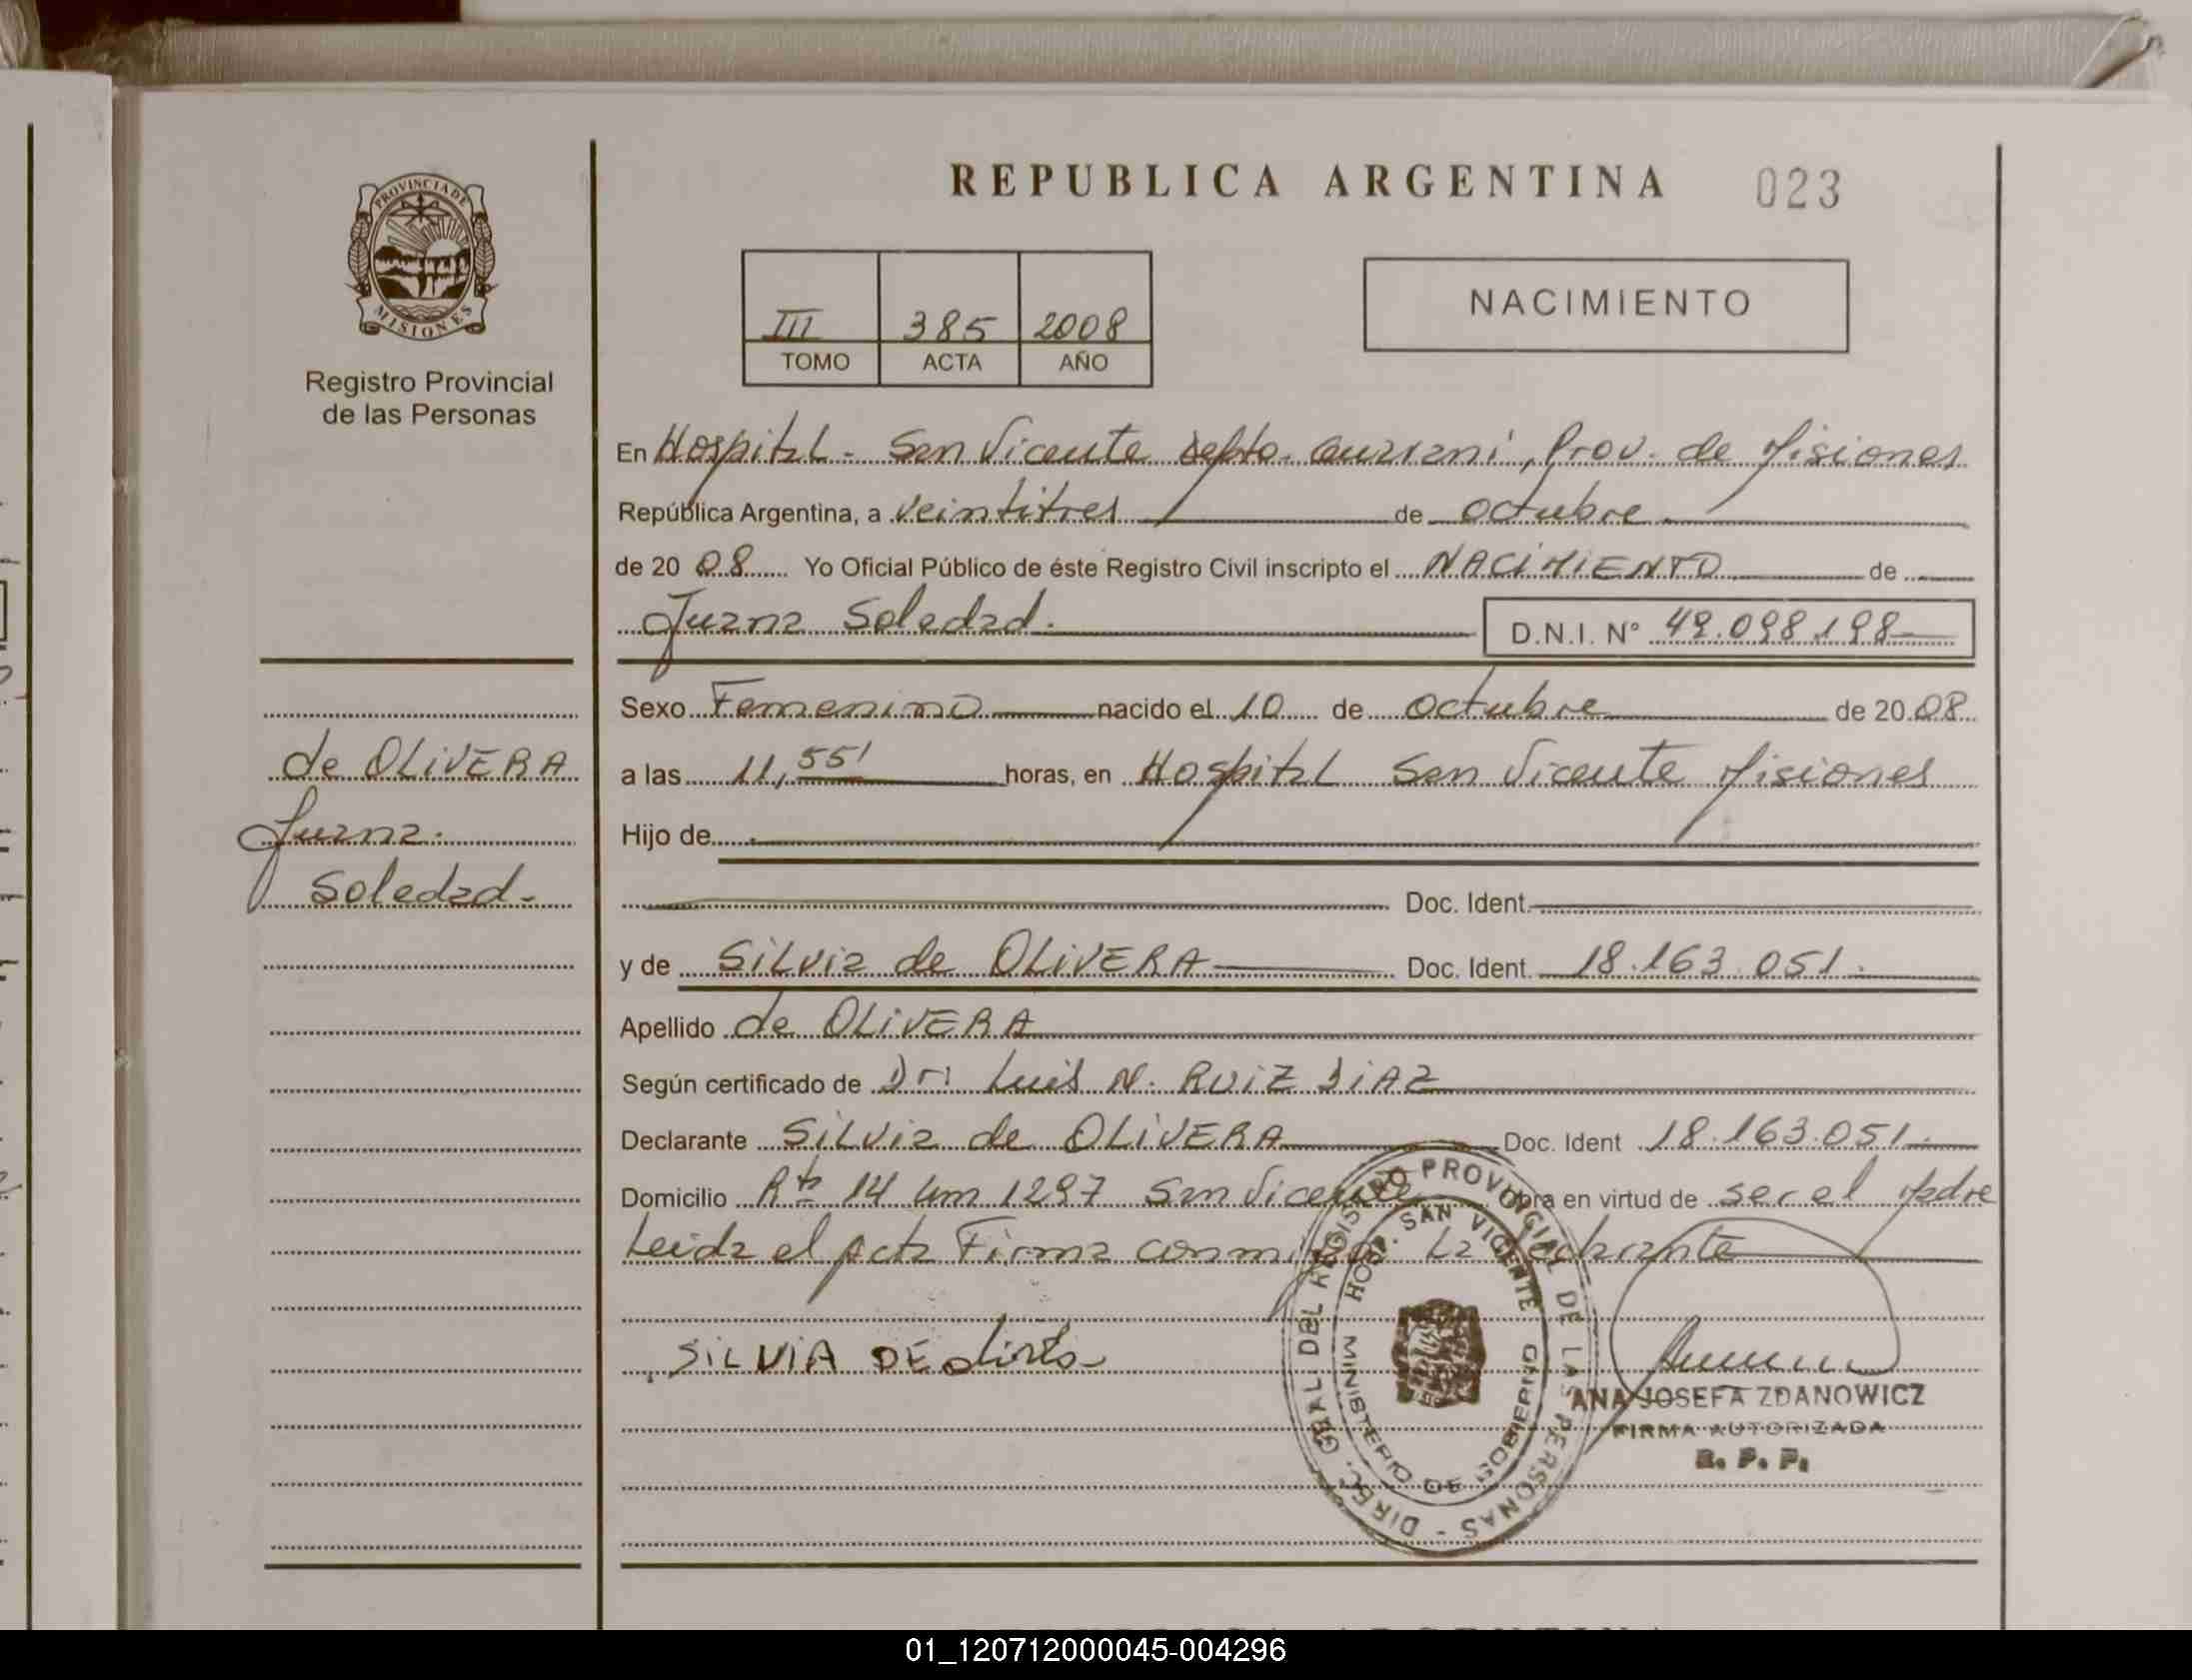 PROVINCIA DE
MISIONES
Registro Provincial
de las Personas
de OLIVERA
Juana
Soledad-
REPUBLICA ARGENTINA 023
III 385 2008
TOMO ACTA AÑO
NACIMIENTO
En Hospital - San Vicente depto. Guarani, Prov. de Misiones
República Argentina, a veintitres de octubre
de 20 08 Yo Oficial Público de éste Registro Civil inscripto el NACIMIENTO de
Juana Soledad. D.N.I. Nº 49.098.198
Sexo Femenino nacido el 10 de octubre de 20 08
a las 11,55' horas, en Hospital San Vicente Misiones
Hijo de
Doc. Ident.
y de Silvia de OLIVERA Doc. Ident. 18.163.051.
Apellido de OLIVERA
Según certificado de Dr: Luis N. RUIZ DIAZ
Declarante Silvia de OLIVERA Doc. Ident 18.163.051.
Domicilio Rta 14 km 1297 San Vicente Obra en virtud de ser el Madre
Leida el Acta Firma conmigo La declarante
SILVIA DE
ANA JOSEFA ZDANOWICZ
FIRMA AUTORIZADA
R. P. P.
DIREC. GRAL DEL REGISTRO PROVINCIAL DE LAS PERSONAS -
HOSP. SAN VICENTE
MINISTERIO DE GOBIERNO
01_120712000045-004296